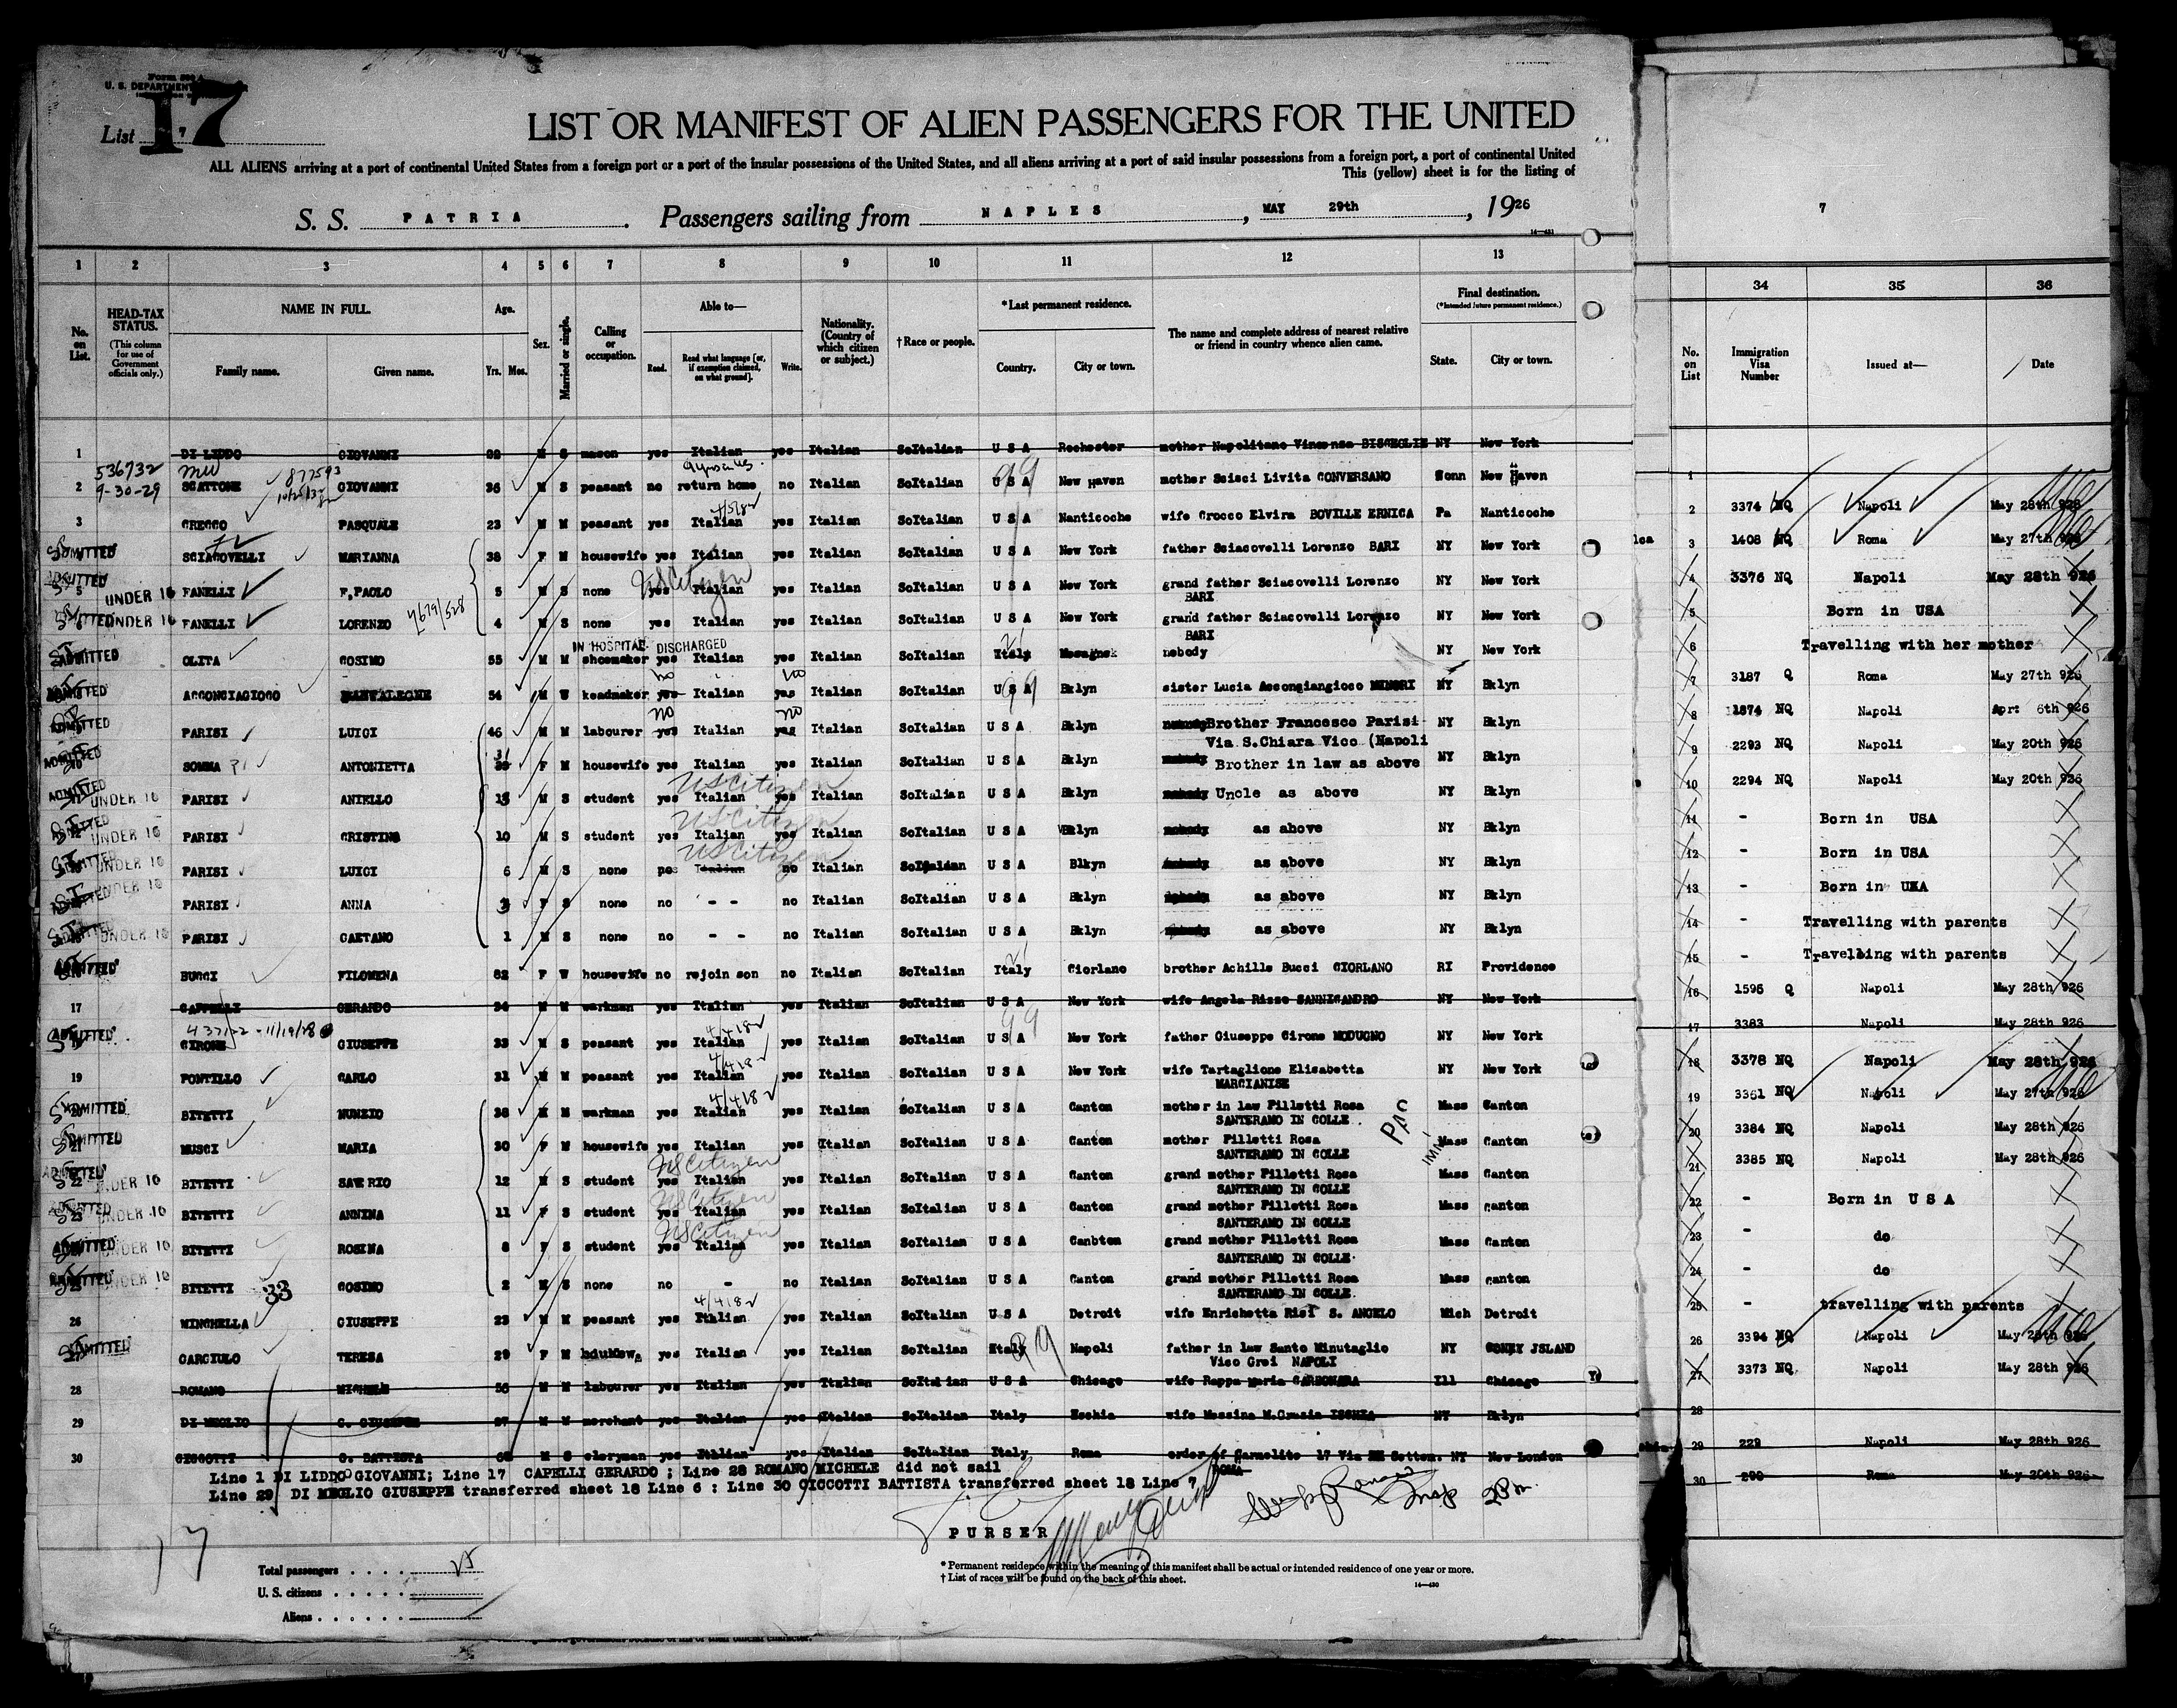 U. S. DEPARTMENT
17
List 7
LIST OR MANIFEST OF ALIEN PASSENGERS FOR THE UNITED
ALL ALIENS arriving at a port of continental United States from a foreign port or a port of the insular possessions of the United States, and all aliens arriving at a port of said insular possessions from a foreign port, a port of continental United
This (yellow) sheet is for the listing of
S. S. PATRIA. Passengers sailing from NAPLES, MAY 29th, 1926
7
14—431
1 2 3 4 5 6 7 8 9 10 11 12 13 34 35 36
No. on List. HEAD-TAX STATUS. (This column for use of Government officials only.) NAME IN FULL. Family name. Given name. Age. Yrs. Mos. Sex. Married or single. Calling or occupation. Able to— Read. Read what language [or, if exemption claimed, on what ground]. Write. Nationality. (Country of which citizen or subject.) †Race or people. *Last permanent residence. Country. City or town. The name and complete address of nearest relative or friend in country whence alien came. Final destination. (*Intended future permanent residence.) State. City or town.
No. on List Immigration Visa Number Issued at— Date
1 DI LIDDO GIOVANNI 32 M S mason yes Italian yes Italian SoItalian U S A Rochester mother Napolitano Vincenza BISCEGLIE NY New York 1
536732 877593
9-30-29
2 SCATTONE GIOVANNI 36 M S peasant no return home no Italian SoItalian U S A New Haven mother Scisci Livita CONVERSANO Conn New Haven 2 3374 NQ Napoli May 28th 926
3 CROCCO PASQUALE 23 M M peasant yes Italian yes Italian SoItalian U S A Nanticoche wife Crocco Elvira BOVILLE ERNICA Pa Nanticoche 3 1408 NQ Roma May 27th 926
ADMITTED SCIACOVELLI MARIANNA 38 F M housewife yes Italian yes Italian SoItalian U S A New York father Sciacovelli Lorenzo BARI NY New York 4 3376 NQ Napoli May 28th 926
ADMITTED 5 UNDER 16 FANELLI F, PAOLO 5 M S none yes Italian yes Italian SoItalian U S A New York grand father Sciacovelli Lorenzo NY New York 5 Born in USA
US Citizen
BARI
ADMITTED UNDER 16 FANELLI LORENZO 4 M S none yes Italian yes Italian SoItalian U S A New York grand father Sciacovelli Lorenzo NY New York 6 Travelling with her mother
BARI
IN HOSPITAL DISCHARGED
ADMITTED OLITA COSIMO 55 M M shoemaker yes Italian yes Italian SoItalian Italy Mesagne nobody NY New York 7 3187 Q Roma May 27th 926
no no
ADMITTED ACCONGIAGIOCO 54 M W yes Italian yes Italian SoItalian U S A Bklyn sister Lucia Accongiangioco MINORI NY Bklyn 8 1874 NQ Napoli Apr: 6th 926
no no
ADMITTED PARISI LUIGI 46 M M labourer yes Italian yes Italian SoItalian U S A Bklyn Brother Francesco Parisi NY Bklyn 9 2293 NQ Napoli May 20th 926
Via S.Chiara Vico (Napoli
ADMITTED SOMMA ANTONIETTA F M housewife yes Italian yes Italian SoItalian U S A Bklyn Brother in law as above NY Bklyn 10 2294 NQ Napoli May 20th 926
US Citizen
ADMITTED UNDER 16 PARISI ANIELLO 15 M S student yes Italian yes Italian SoItalian U S A Bklyn Uncle as above NY Bklyn 11 - Born in USA
US Citizen
ADMITTED UNDER 16 PARISI CRISTINO 10 M S student yes Italian yes Italian SoItalian U S A Bklyn as above NY Bklyn 12 - Born in USA
US Citizen
ADMITTED UNDER 16 PARISI LUIGI 6 M S none no Italian no Italian SoItalian U S A Blkyn as above NY Bklyn 13 - Born in UKA
ADMITTED UNDER 16 PARISI ANNA 3 F S none no - - no Italian SoItalian U S A Bklyn as above NY Bklyn 14 - Travelling with parents
ADMITTED UNDER 16 PARISI GAETANO 1 M S none no - - no Italian SoItalian U S A Bklyn as above NY Bklyn 15 - Travelling with parents
ADMITTED BUCCI FILOMENA 62 F W housewife no rejoin son no Italian SoItalian Italy Ciorlano brother Achille Bucci CIORLANO RI Providence 16 1596 Q Napoli May 28th 926
17 CAPPELLI GERARDO 34 M M workman yes Italian yes Italian SoItalian U S A New York wife Angela Rizzo SANNICANDRO NY New York 17 3383 Napoli May 28th 926
11/19/28 4/4/18
ADMITTED CIRONE GIUSEPPE 33 M S peasant yes Italian yes Italian SoItalian U S A New York father Giuseppe Cirone MODUGNO NY New York 18 3378 NQ Napoli May 28th 926
4/4/18
19 FONTILLO CARLO 31 M M peasant yes Italian yes Italian SoItalian U S A New York wife Tartaglione Elisabetta NY New York 19 3361 NQ Napoli May 27th 926
MARCIANISE
4/4/18
ADMITTED BITETTI NUNZIO 38 M M workman yes Italian yes Italian SoItalian U S A Canton mother in law Pilletti Rosa Mass Canton 20 3384 NQ Napoli May 28th 926
SANTERAMO IN COLLE
ADMITTED 21 MUSCI MARIA 30 F M housewife yes Italian yes Italian SoItalian U S A Canton mother Pilletti Rosa Mass Canton 21 3385 NQ Napoli May 28th 926
SANTERAMO IN COLLE
US Citizen
ADMITTED 22 UNDER 16 BITETTI SAVERIO 12 M S student yes Italian yes Italian SoItalian U S A Canton grand mother Pilletti Rosa Mass Canton 22 - Born in U S A
SANTERAMO IN COLLE
US Citizen
ADMITTED 23 UNDER 16 BITETTI ANNINA 11 F S student yes Italian yes Italian SoItalian U S A Canton grand mother Pilletti Rosa Mass canton 23 - do
SANTERAMO IN COLLE
US Citizen
ADMITTED UNDER 16 BITETTI ROSINA 8 F S student yes Italian yes Italian SoItalian U S A Canbton grand mother Pilletti Rosa Mass Canton 24 - do
SANTERAMO IN COLLE
ADMITTED UNDER 16 BITETTI 33 COSIMO 2 M S none no - no Italian SoItalian U S A Canton grand mother Pilletti Rosa Mass canton 25 - travelling with parents
SANTERAMO IN COLLE.
4/4/18
26 WINCHELLA GIUSEPPE 23 M M peasant yes Italian yes Italian SoItalian U S A Detroit wife Enrichetta Risi S. ANGELO Mich Detroit 26 3394 NQ Napoli May 28th 926
ADMITTED GARGIULO TERESA 29 F M yes Italian yes Italian SoItalian Italy Napoli father in law Santo Minutaglio NY CONEY JSLAND 27 3373 NQ Napoli May 28th 926
Vico Grei NAPOLI
28 ROMANO MICHELE 56 M M labourer yes Italian yes Italian SoItalian U S A Chicago wife Rappa Maria CARBONARA Ill Chicago 28
29 DI MEGLIO G. GIUSEPPE 37 M M merchant yes Italian yes Italian SoItalian Italy Eschia wife Messina M.Grazia ISCHIA NY Bklyn 29 229 Napoli May 28th 926
30 CICCOTTI G. BATTISTA M S cleryman yes Italian yes Italian SoItalian Italy Roma order of Carmelite 17 Via Sottem. NY New London 30 290 Roma May 20th 926
ROMA
Line 1 DI LIDDO GIOVANNI; Line 17 CAPELLI GERARDO ; Line 28 ROMANO MICHELE did not sail
Line 29 DI MEGLIO GIUSEPPE transferred sheet 18 Line 6 : Line 30 CICCOTTI BATTISTA transferred sheet 18 Line 7
PURSER
17
Total passengers . . . . 25
U. S. citizens . . . . .
Aliens . . . . . .
* Permanent residence within the meaning of this manifest shall be actual or intended residence of one year or more.
† List of races will be found on the back of this sheet.
14—430